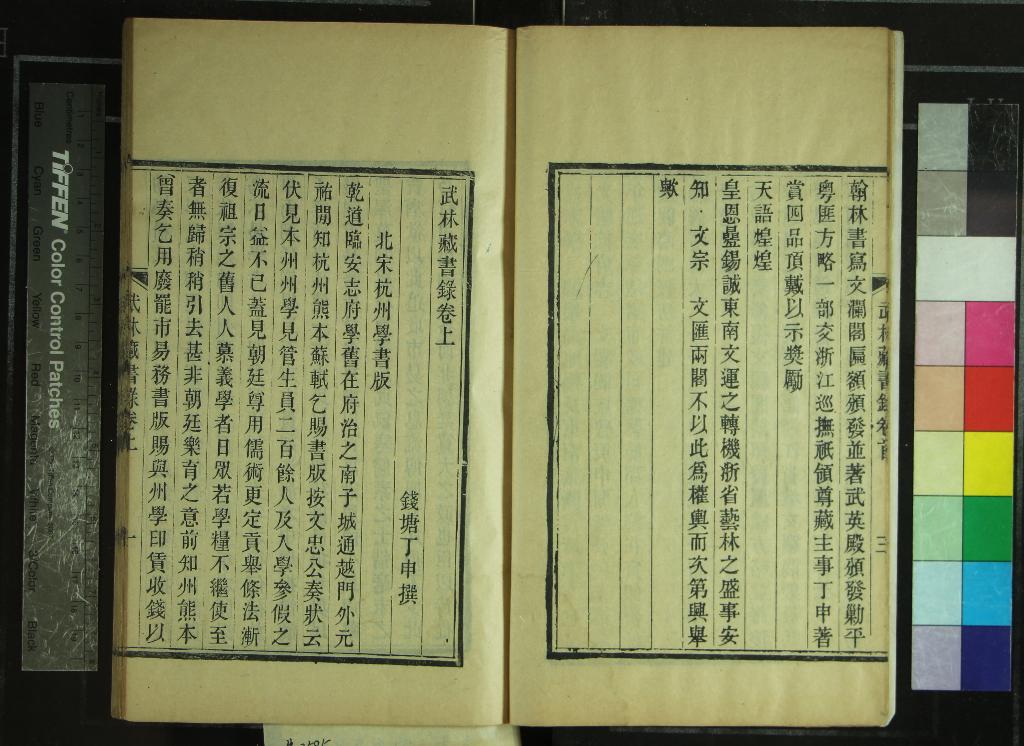 翰林書寫文瀾閣匾額頒發並著武英殿頒發勦平
粵匪方略一部交浙江巡撫祇領尊藏主事丁申著
賞四品頂戴以示獎勵
天語煌煌
皇恩疊錫誠東南文運之轉機浙省藝林之盛事安
知 文宗 文匯兩閣不以此為權輿而次第興舉
歟
武林藏書錄卷首
三
武林藏書錄卷上
錢塘丁申撰
北宋杭州學書版
乾道臨安志府學舊在府治之南子城通越門外元
祐閒知杭州熊本蘇軾乞賜書版按文忠公奏狀云
伏見本州州學見管生員二百餘人及入學參假之
流日益不已蓋見朝廷尊用儒術更定貢舉條法漸
復祖宗之舊人人慕義學者日眾若學糧不繼使至
者無歸稍稍引去甚非朝廷樂育之意前知州熊本
曾奏乞用廢罷市易務書版賜與州學印賃收錢以
武林藏書錄卷上
一
TIFFEN Color Control Patches
Centimetres
Blue
Cyan
Green
Yellow
Red
Magenta
White
3/Color
Black